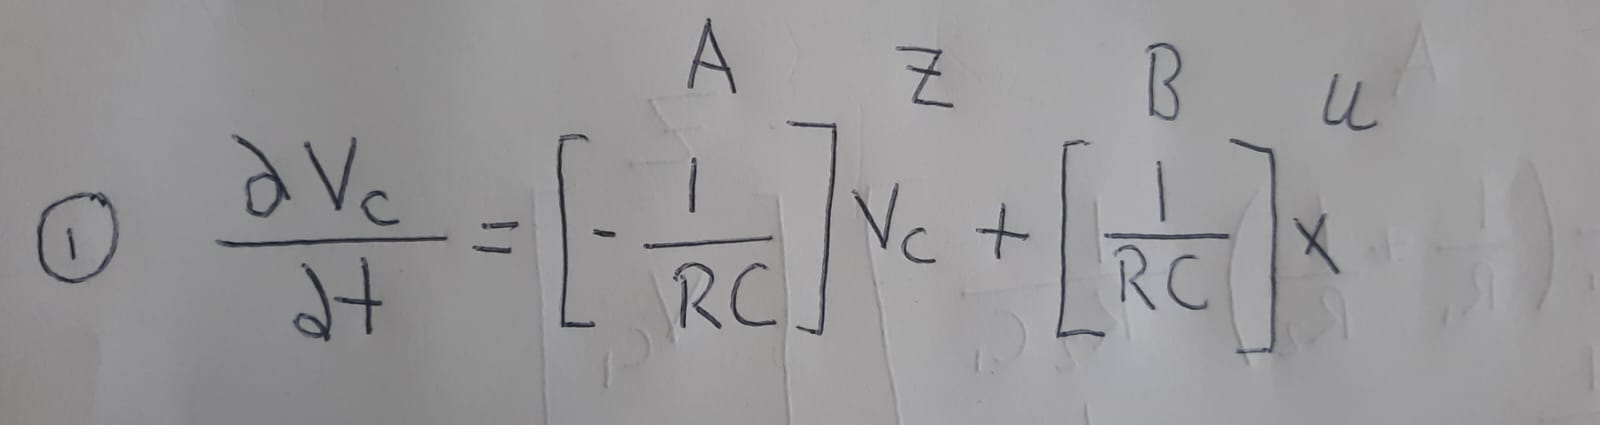 A z B u
① ∂Vc/∂t = [-1/RC] Vc + [1/RC] x